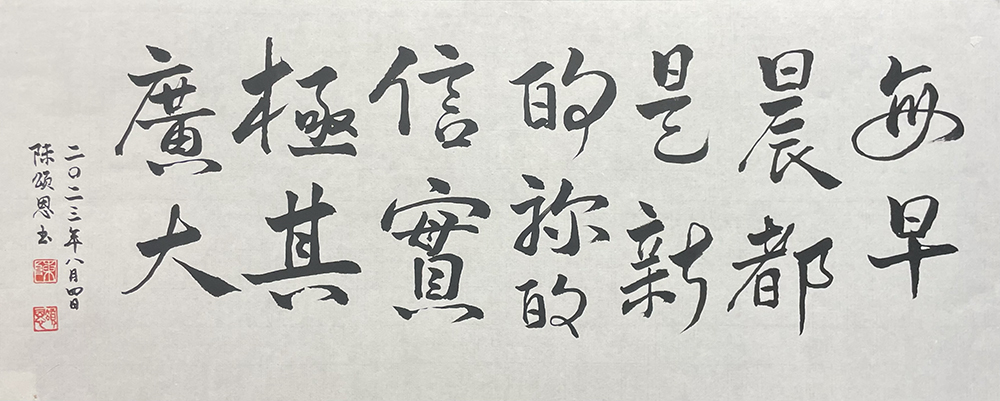 每早
晨都
是新
的祢的
信實
極其
廣大
二〇二三年八月四日
陳頌恩书